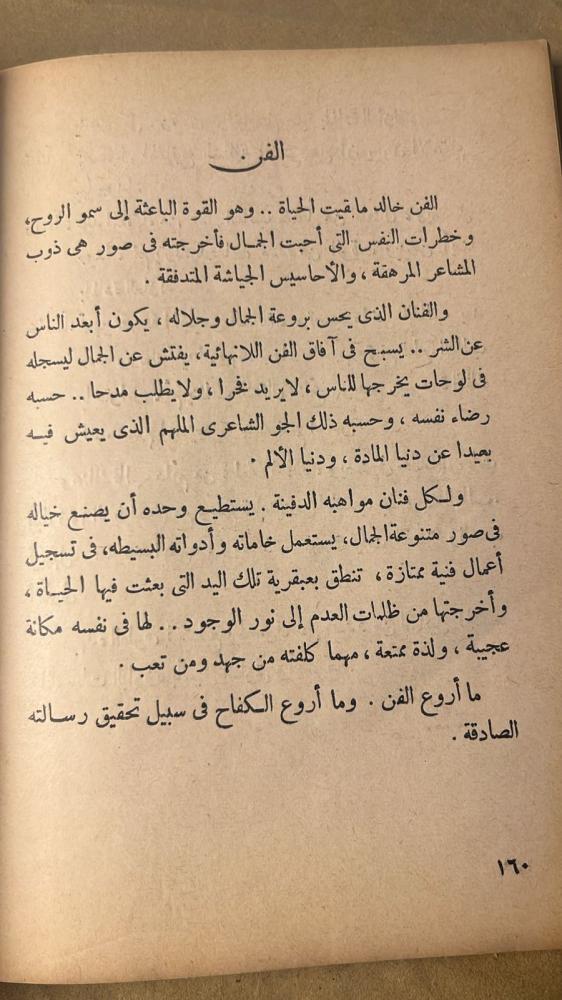 الفن
الفن خالد ما بقيت الحياة .. وهو القوة الباعثة إلى سمو الروح،
وخطرات النفس التى أحبت الجمال فأخرجته فى صور هى ذوب
المشاعر المرهقة ، والأحاسيس الجياشة المتدفقة .
والفنان الذى يحس بروعة الجمال وجلاله ، يكون أبعد الناس
عن الشر .. يسبح فى آفاق الفن اللانهائية، يفتش عن الجمال ليسجله
فى لوحات يخرجها للناس ، لا يريد فخرا ، ولا يطلب مدحا .. حسبه
رضاء نفسه ، وحسبه ذلك الجو الشاعرى الملهم الذى يعيش فيه
بعيدا عن دنيا المادة ، ودنيا الألم .
ولكل فنان مواهبه الدفينة . يستطيع وحده أن يصنع خياله
فى صور متنوعة الجمال، يستعمل خاماته وأدواته البسيطه، فى تسجيل
أعمال فنية ممتازة ، تنطق بعبقرية تلك اليد التى بعثت فيها الحياة ،
وأخرجتها من ظلمات العدم إلى نور الوجود .. لها فى نفسه مكانة
عجيبة ، ولذة ممتعة ، مهما كلفته من جهد ومن تعب .
ما أروع الفن . وما أروع الكفاح فى سبيل تحقيق رسالته
الصادقة .
١٦٠